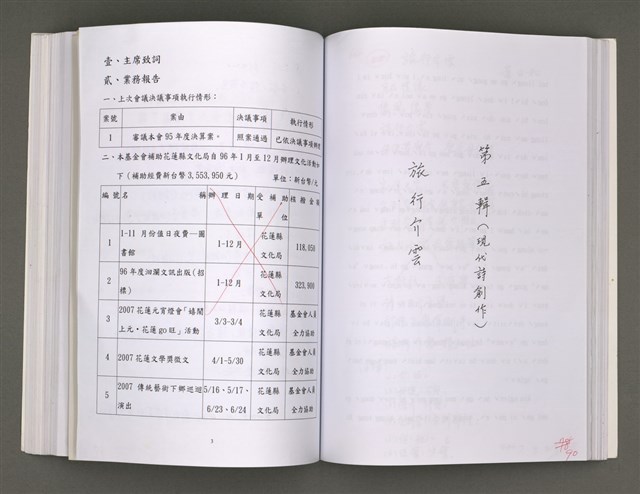 壹、主席致詞
貳、業務報告
一、上次會議決議事項執行情形：
案號 案由 決議事項 執行情形
1 審議本會95年度決算案。 照案通過 已依決議事項辦理
二、本基金會補助花蓮縣文化局自96年1月至12月辦理文化活動如
下（補助經費新台幣3,553,950元） 單位：新台幣/元
編號 名稱 辦理日期 受補助單位 核撥金額
1 1-11月份值日夜費—圖書館 1-12月 花蓮縣文化局 118,050
2 96年度洄瀾文訊出版(招標) 1-12月 花蓮縣文化局 323,900
3 2007花蓮元宵燈會「嬉鬧上元‧花蓮go旺」活動 3/3-3/4 花蓮縣文化局 基金會人員全力協助
4 2007花蓮文學獎徵文 4/1-5/30 花蓮縣文化局 基金會人員全力協助
5 2007傳統藝術下鄉巡迴演出 5/16、5/17、6/23、6/24 花蓮縣文化局 基金會人員全力協助
3
第五輯（現代詩創作）
旅行介雲
90